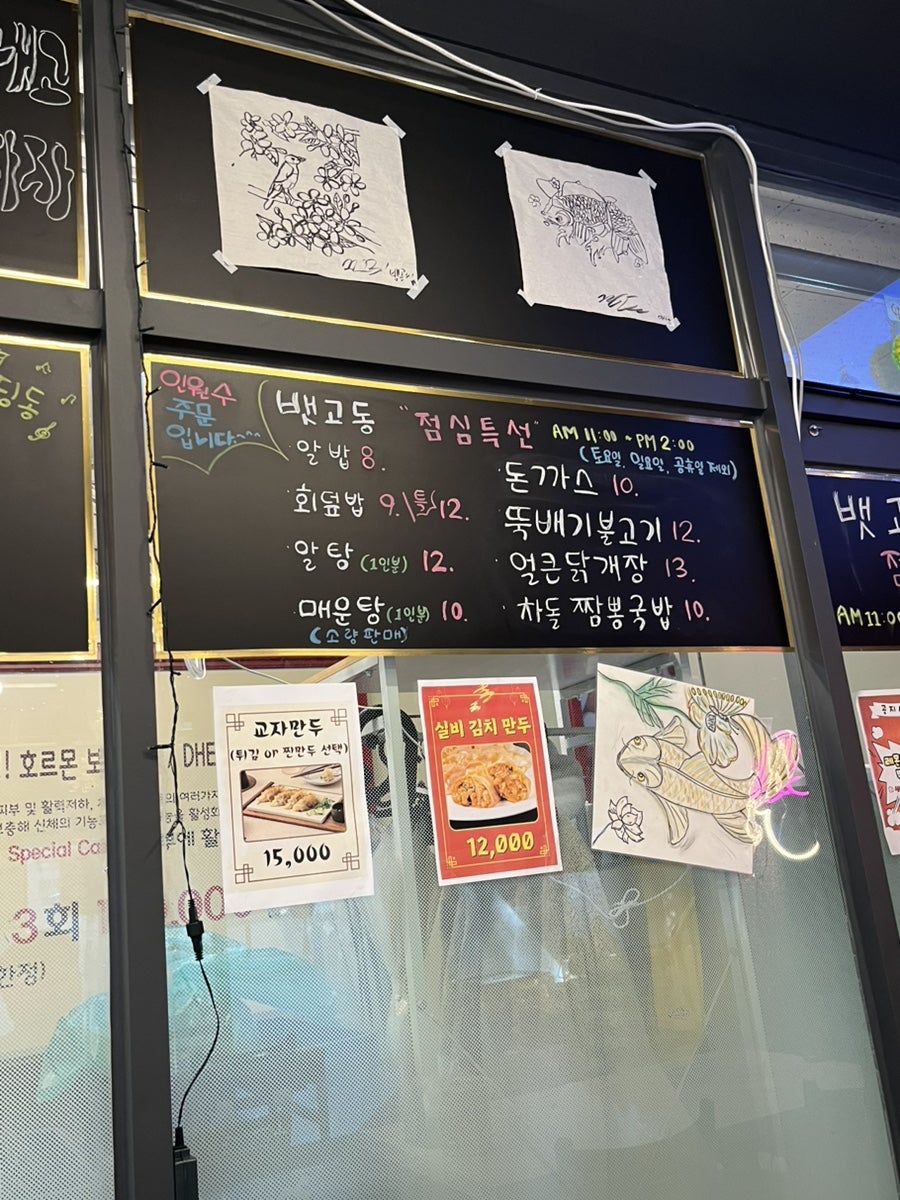 인원수
주문
입니다~^^
뱃고동 "점심특선" AM 11:00 ~ PM 2:00
(토요일, 일요일, 공휴일 제외)
·알밥 8.
·회덮밥 9. \특 12.
·알탕 (1인분) 12.
·매운탕 (1인분) 10.
(소량판매)
·돈까스 10.
·뚝배기불고기 12.
·얼큰닭개장 13.
·차돌짬뽕국밥 10.
AM 11:00
교자만두
(튀김 or 찐만두 선택)
15,000
실비 김치 만두
12,000
! 호르몬 보
DHE
피부 및 활력저하,
보충해 신체의 기능
Special Ca
3회
한정)